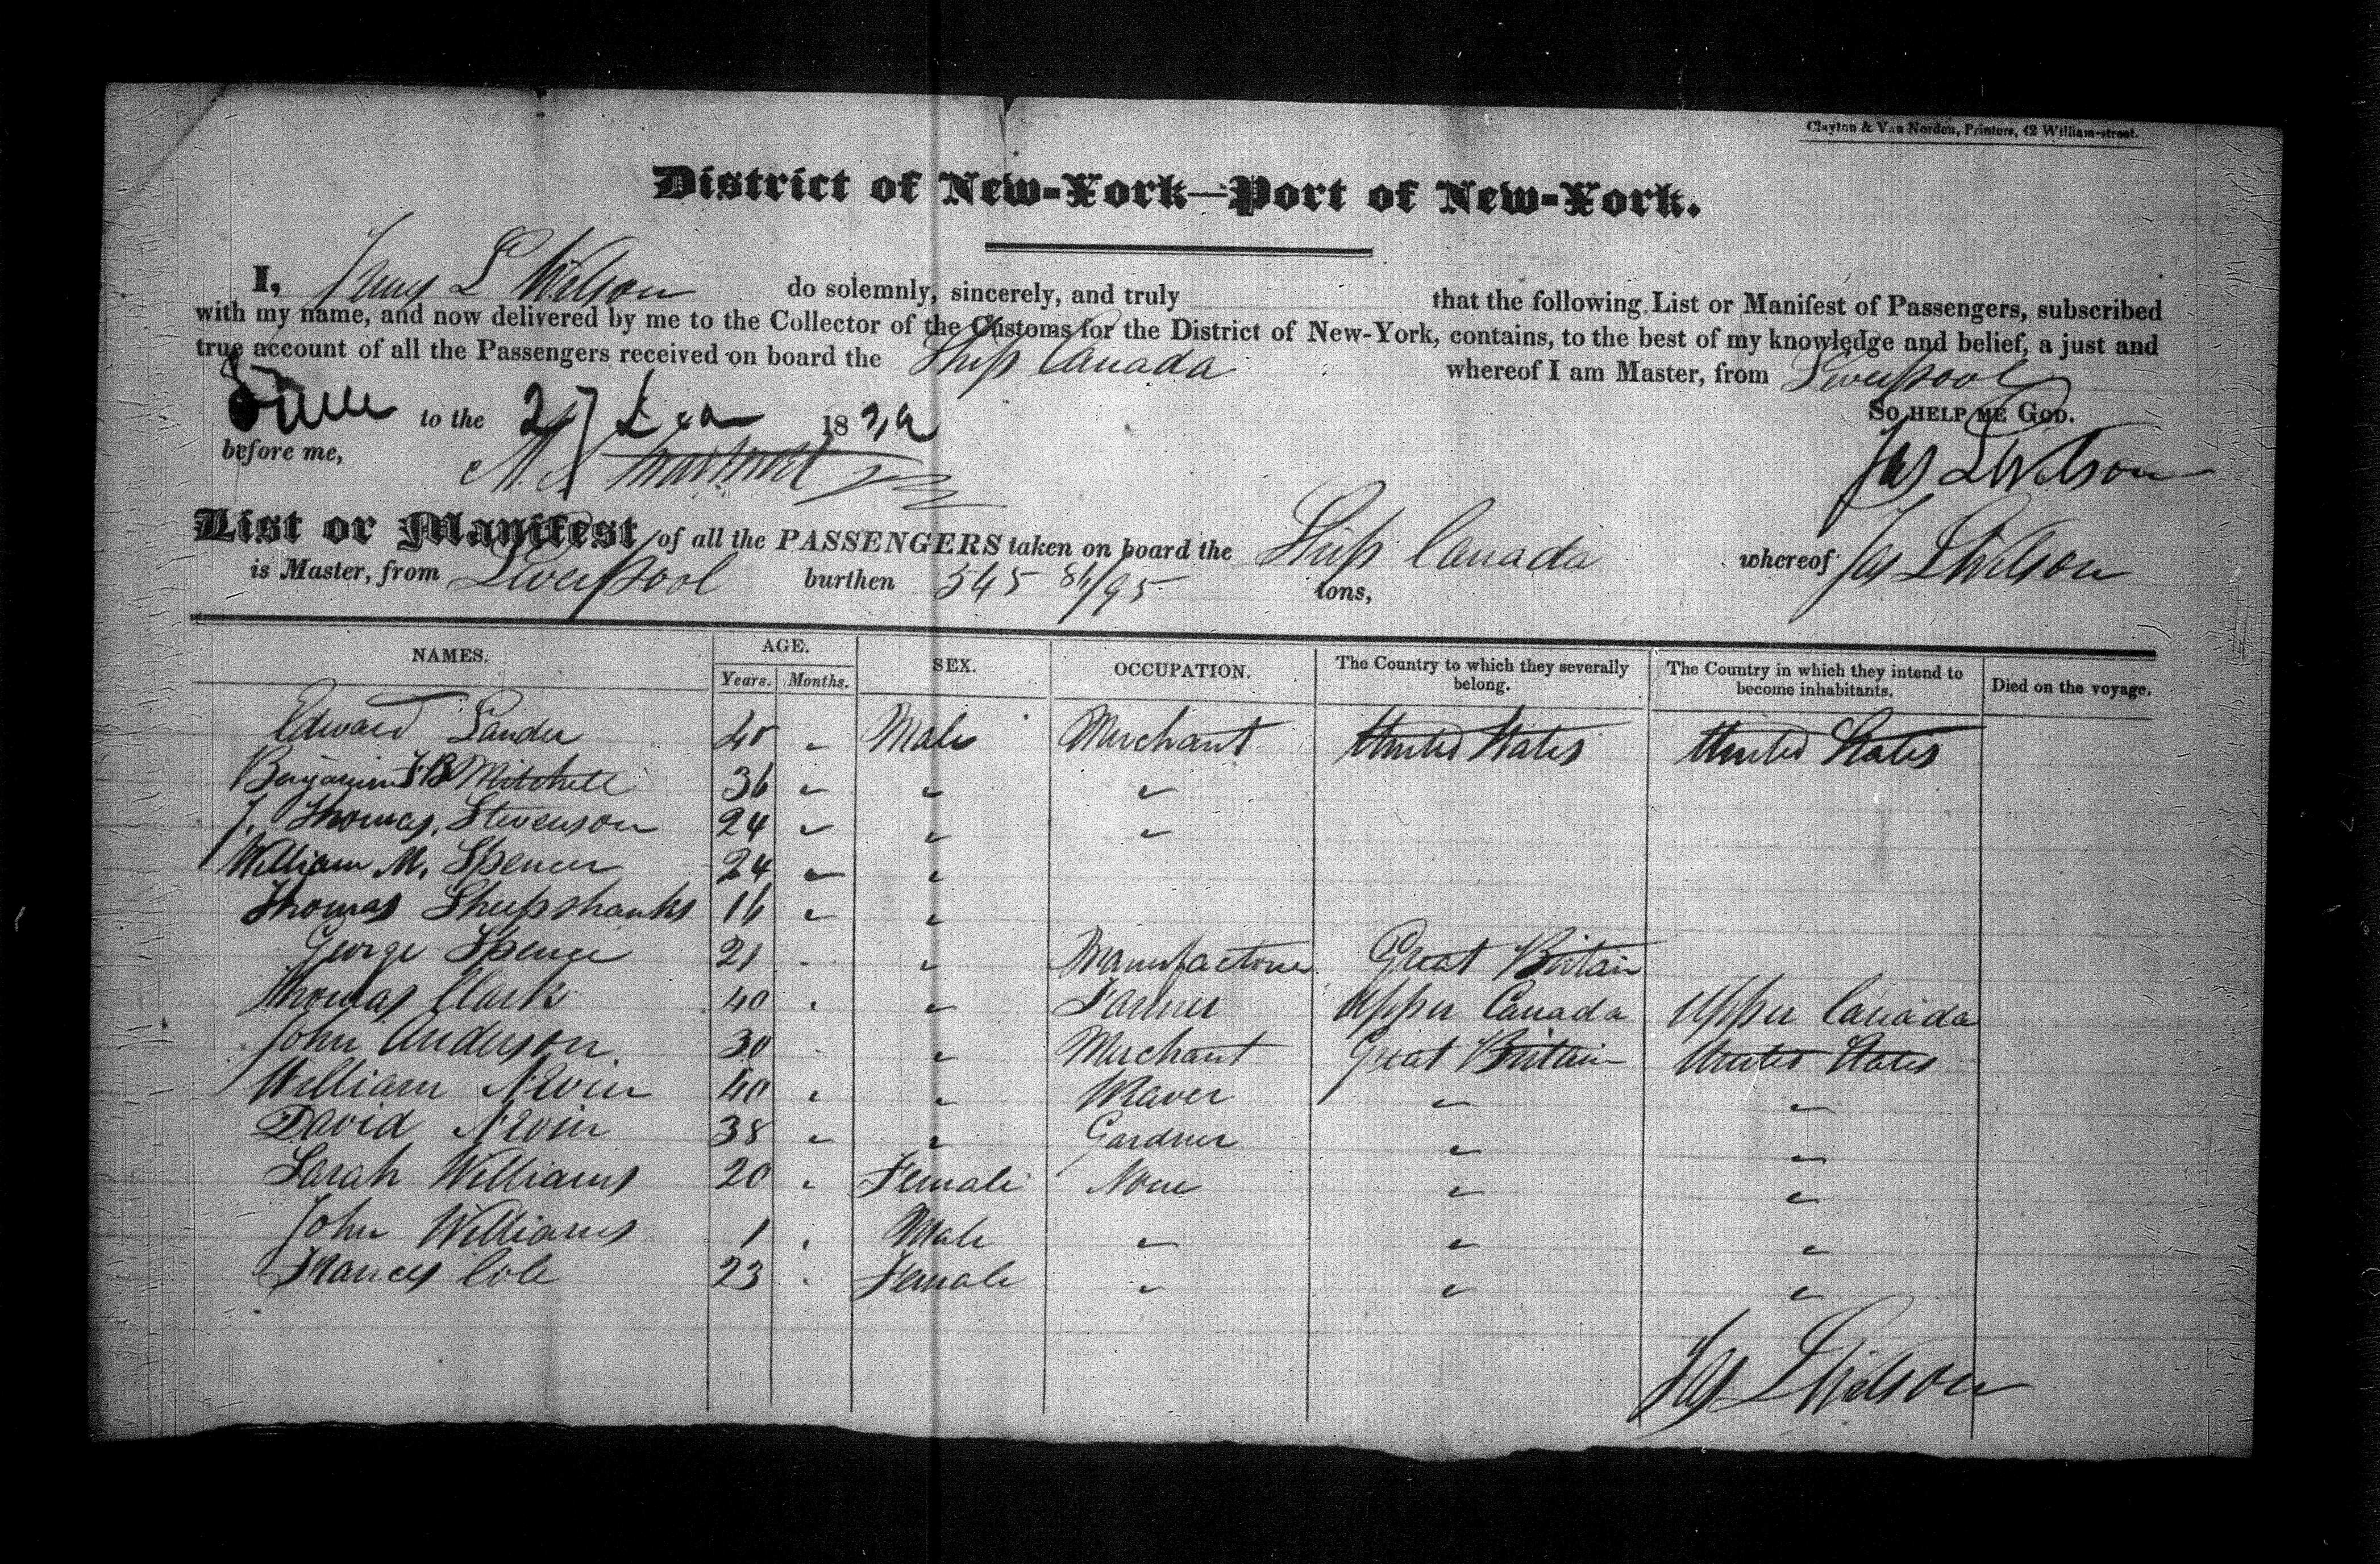 Clayton & Van Norden, Printers, 42 William-street.
District of New-York—Port of New-York.
I, James L Wilson do solemnly, sincerely, and truly that the following List or Manifest of Passengers, subscribed
with my name, and now delivered by me to the Collector of the Customs for the District of New-York, contains, to the best of my knowledge and belief, a just and
true account of all the Passengers received on board the Ship Canada whereof I am Master, from Liverpool
to the 27 18
So help me God.
before me, Jas L Wilson
List or Manifest of all the PASSENGERS taken on board the Ship Canada whereof Jas L Wilson
is Master, from Liverpool burthen 545 86/95 tons,
NAMES. AGE. SEX. OCCUPATION. The Country to which they severally belong. The Country in which they intend to become inhabitants. Died on the voyage.
Years. Months.
Edward 40 " Male Merchant United States United States
Benjamin Mitchell 36 " " "
J. Thomas Stevenson 24 " " "
William M. Spencer 24 " "
Thomas Sheepshanks 16 " "
George Spence 21 " " Manufacturer Great Britain
Thomas Clark 40 " " Farmer Upper Canada Upper Canada
John Anderson 30 " " Merchant Great Britain United States
William 40 " " Weaver " "
David 38 " " Gardner " "
Sarah Williams 20 " Female None " "
John Williams 1 " Male " " "
Frances Cole 23 " Female " " "
Jas L Wilson